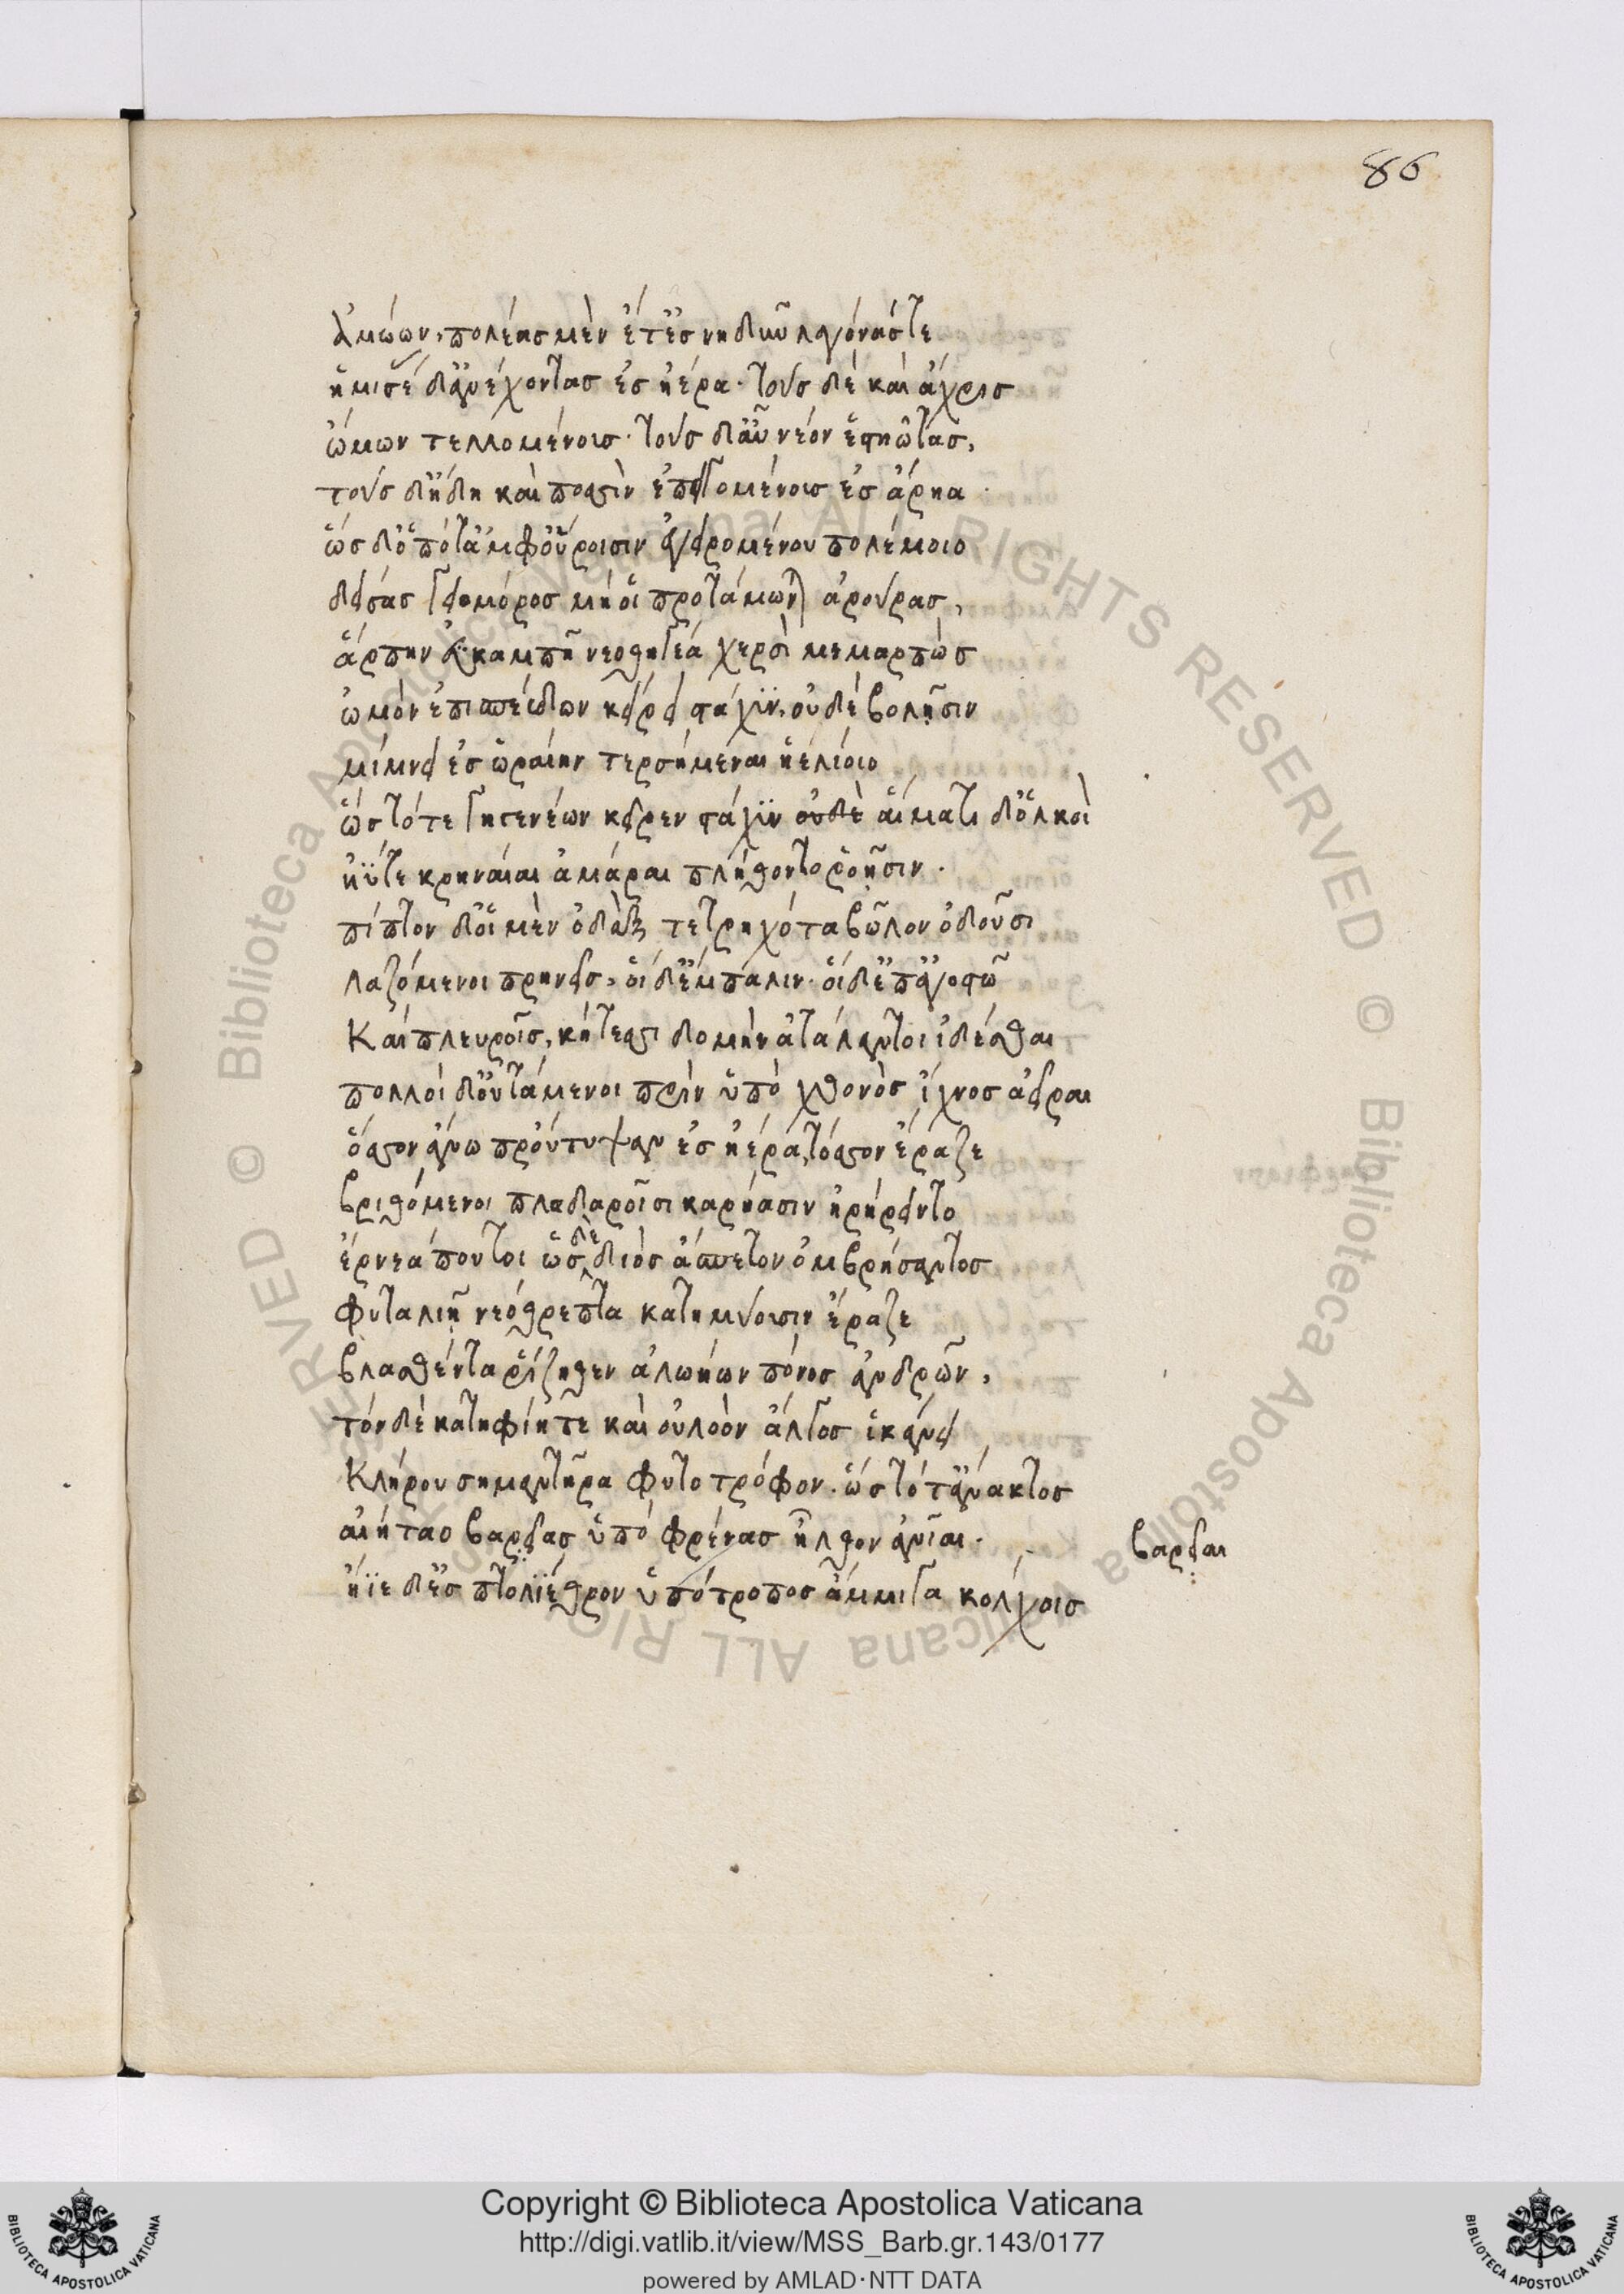 86
ἀμώων, πολέας μὲν ἔτ' ἐς νηδὺν λαγόνάς τε
ἥμισε' δ' ἀνέχοντας ἐς ἠέρα. τοὺς δὲ καὶ ἄχρις
ὤμων τελλομένοις. τοὺς δ' ἂν νέον ἑστηῶτας,
τοὺς δ' ἤδη καὶ ποσσὶν ἐπειγομένοις ἐς ἄρηα.
ὡς δ' ὁπότ' ἀμφ' οὔροισιν ἐγειρομένου πολέμοιο
δείσας γειομόρος μή οἱ προτάμωνται ἀρούρας,
ἅρπην εὐκαμπῆ νεοθηγέα χερσὶ μεμαρπὼς
ὠμὸν ἐπισπεύδων κείρει στάχϋν, οὐδὲ βολῇσιν
μίμνει ἐς ὡραίην τερσήμεναι ἠελίοιο
ὡς τότε γηγενέων κεῖρεν στάχϋν οὐδὲ αἵματι δ' ὁλκοὶ
ἠΰτε κρηναίαι ἀμάραι πλήθοντο ῥοῇσιν.
πίπτον δ' οἱ μὲν ὀδὰξ τετρηχότα βῶλον ὀδοῦσι
λαζόμενοι πρηνεῖς, οἱ δ' ἔμπαλιν. οἱ δ' ἐπ' ἀγοστῶ
Καὶ πλευροῖς, κήτεσσι δομὴν ἀτάλαντοι ἰδέσθαι
πολλοὶ δ' οὐτάμενοι πρὶν ὑπὸ χθονὸς ἴχνος ἀεῖραι
ὅσσον ἄνω προὔτυψαν ἐς ἠέρα, τόσσον ἔραζε
βριθόμενοι πλαδαροῖσι καρήασιν ἠρήρειντο
ἔρνεά που τοι ὡς δὲ διὸς ἄσπετον ὀμβρήσαντος
φυταλιῇ νεόθρεπτα κατημύουσιν ἔραζε
βλασθέντα ῥίζηθεν ἀλωήων πόνος ἀνδρῶν,
τόν δὲ κατηφίη τε καὶ οὐλοὸν ἄλγος ἱκάνει
Κλήρου σημαντῆρα φυτοτρόφον. ὡς τότ' ἄνακτος
αἰήταο βαρεῖας ὑπὸ φρένας ἦλθον ἀνῖαι.
ἤϊε δ' ἐς πτολίεθρον ὑπότροπος ἄμμιγα κολχοις
βαρεῖαι
Copyright © Biblioteca Apostolica Vaticana
http://digi.vatlib.it/view/MSS_Barb.gr.143/0177
powered by AMLAD·NTT DATA